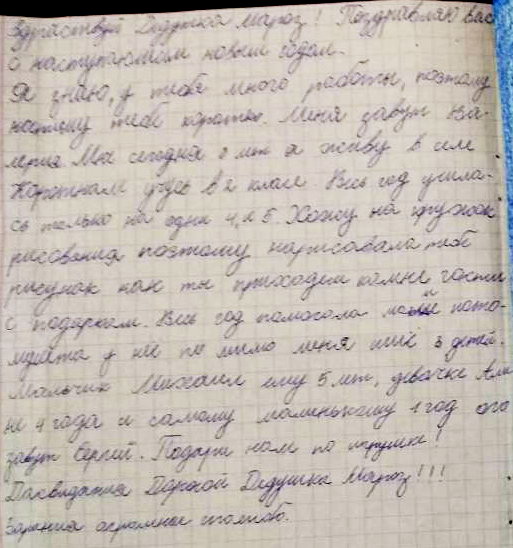 Здраствуй Дедушка Мароз! Поздравляю вас
с наступающим новым годом.
Я знаю, у тебя много работы, поэтому
напишу тебе коротко. Меня завут Ва-
лерия. Мне сегодня 8 лет я живу в селе
учусь в 2 класе. Весь год учила-
сь только на одни 4, и 5. Хожу на кружок
рисования поэтому нарисовала тебе
рисунок как ты приходеш камне гости
с подаркам. Весь год памогала маме пото-
му што у неё по мимо меня ищё 3 детей.
Мальчик Михаил ему 5 лет, девочке Али
не 4 года и самому маленькому 1 год его
завут Сергей. Подари нам по игрушке!
Дасвидания Дорогой Дедушка Мароз!!!
Зарания огромное спасибо.